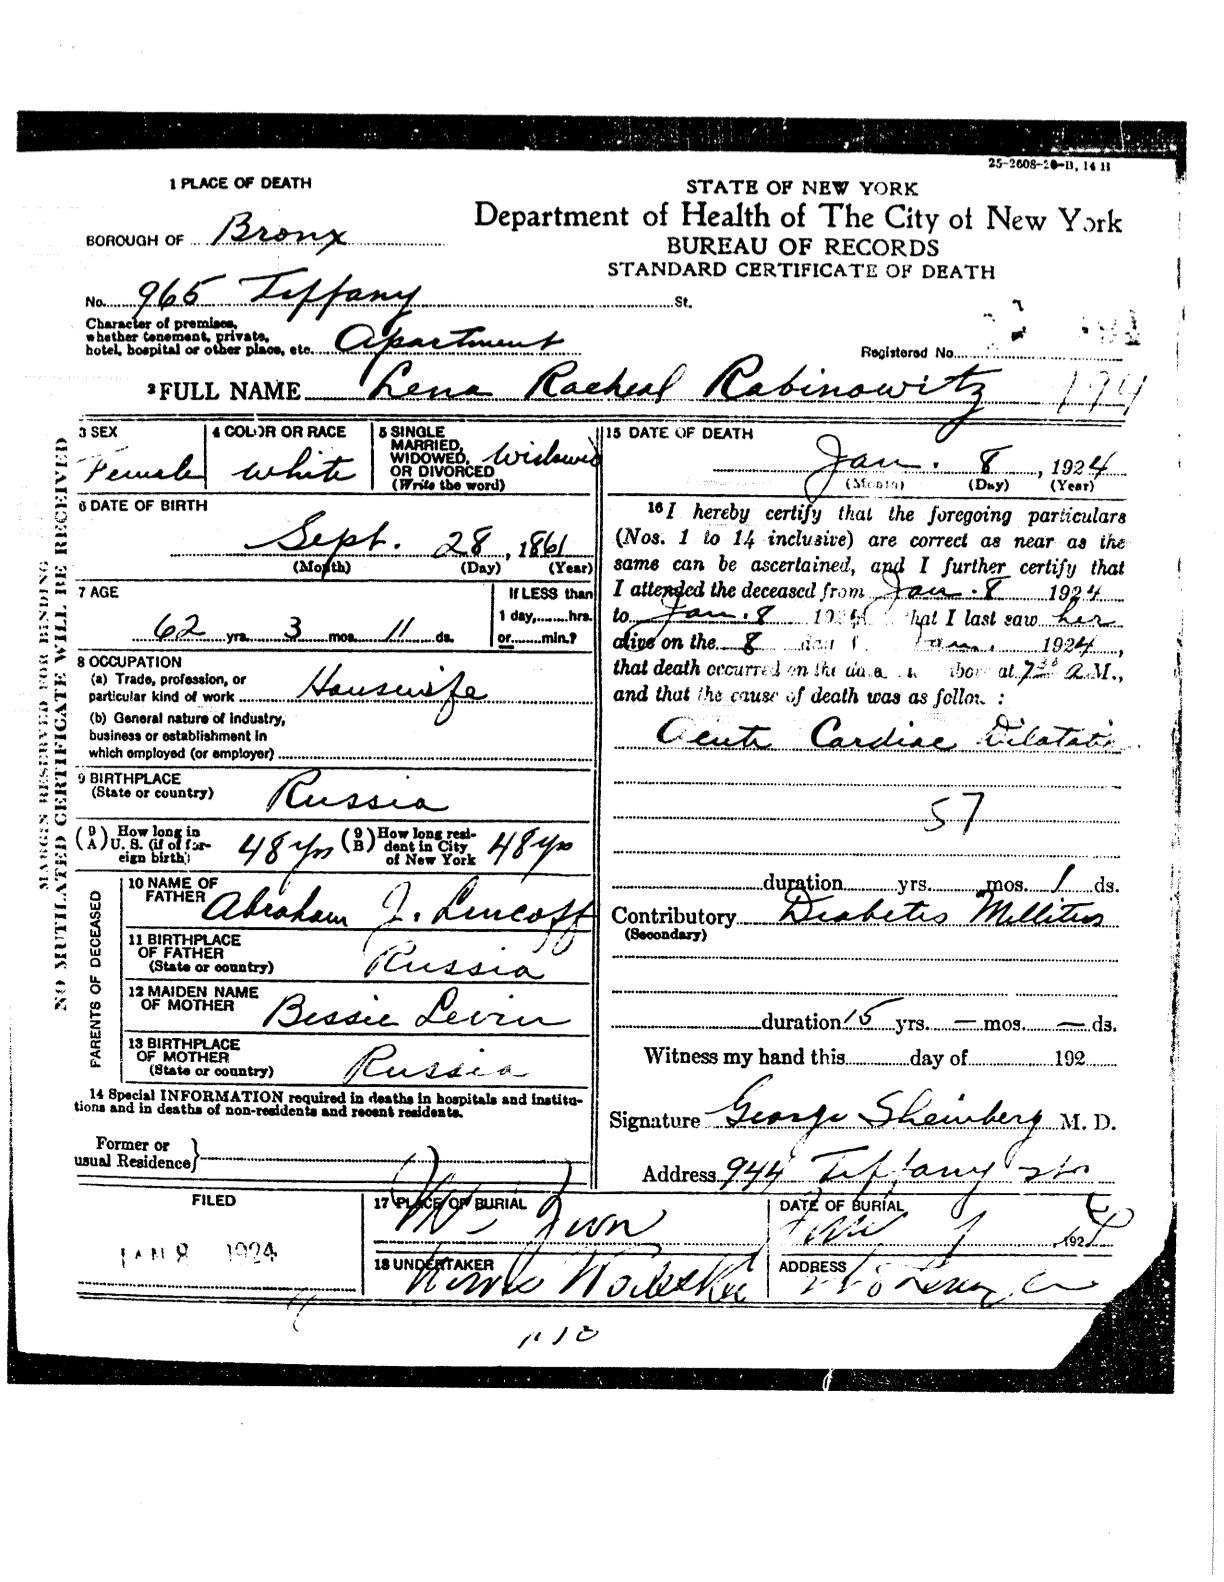 25-2608-20-B, 14 H
1 PLACE OF DEATH
STATE OF NEW YORK
Department of Health of The City of New York
BUREAU OF RECORDS
STANDARD CERTIFICATE OF DEATH
BOROUGH OF Bronx
No. 965 Tiffany St.
Character of premises,
whether tenement, private,
hotel, hospital or other place, etc. Apartment
Registered No.
2 FULL NAME Lena Racheal Rabinowitz
194
3 SEX
Female
4 COLOR OR RACE
White
5 SINGLE
MARRIED,
WIDOWED,
OR DIVORCED
(Write the word)
Widowed
6 DATE OF BIRTH
Sept. 28, 1861
(Month) (Day) (Year)
7 AGE
62 yrs. 3 mos. 11 ds.
If LESS than
1 day, hrs.
or min.?
8 OCCUPATION
(a) Trade, profession, or
particular kind of work Housewife
(b) General nature of industry,
business or establishment in
which employed (or employer)
9 BIRTHPLACE
(State or country)
Russia
(9A) How long in
U. S. (if of for-
eign birth)
48 yrs
(9B) How long resi-
dent in City
of New York
48 yrs
PARENTS OF DECEASED
10 NAME OF
FATHER
Abraham J. Lincoff
11 BIRTHPLACE
OF FATHER
(State or country)
Russia
12 MAIDEN NAME
OF MOTHER
Bessie Levin
13 BIRTHPLACE
OF MOTHER
(State or country)
Russia
14 Special INFORMATION required in deaths in hospitals and institu-
tions and in deaths of non-residents and recent residents.
Former or
usual Residence
15 DATE OF DEATH
Jan. 8, 1924
(Month) (Day) (Year)
16 I hereby certify that the foregoing particulars
(Nos. 1 to 14 inclusive) are correct as near as the
same can be ascertained, and I further certify that
I attended the deceased from Jan. 8 1924
to Jan. 8 1924 that I last saw her
alive on the 8 day of Jan. 1924,
that death occurred on the date above at 7 30 A.M.,
and that the cause of death was as follows:
Acute Cardiac Dilatation
57
duration yrs. mos. 1 ds.
Contributory Diabetes Mellitus
(Secondary)
duration 15 yrs. — mos. — ds.
Witness my hand this day of 192
Signature George Sheinberg M. D.
Address 944 Tiffany St
FILED
JAN 8 1924
17 PLACE OF BURIAL
Mt Zion
DATE OF BURIAL
1924
18 UNDERTAKER
ADDRESS
MARGIN RESERVED FOR BINDING
NO MUTILATED CERTIFICATE WILL BE RECEIVED